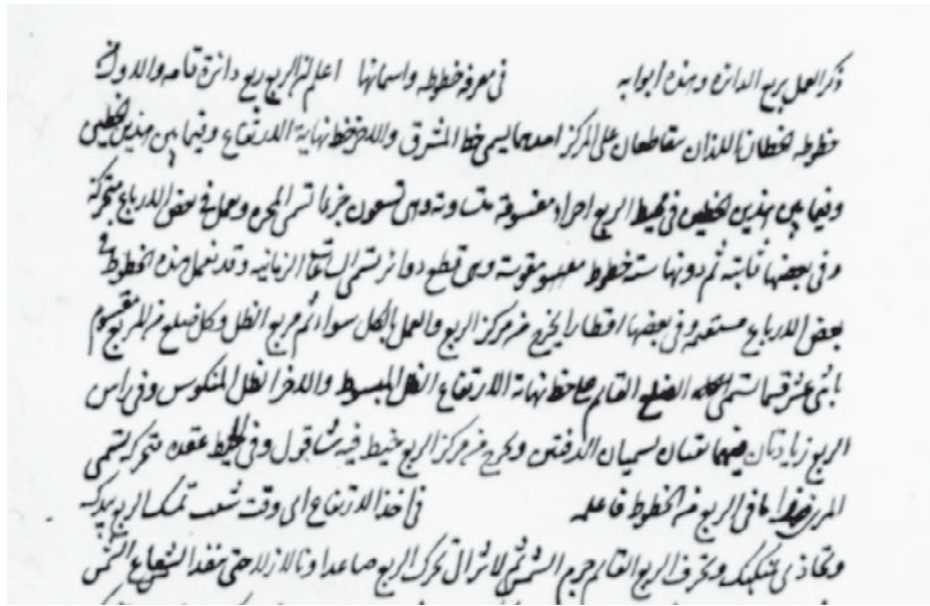 ذكر العمل بربع الدائرة وهذه ابوابه في معرفة خطوطه واسمائها اعلم ان الربع ربع دائرة تامة والاول من
خطوطه الخطان اللذان يتقاطعان على المركز احدهما يسمى خط المشرق والاخر خط نهاية الارتفاع وفيما بين هذين الخطين
وفيما بين هذين الخطين في محيط الربع اجزاء مقسومة متساوية وهي تسعون جزءا تسمى الحجرة ويعمل في بعض الارباع متحركة
وفي بعضها ثابتة ثم دونها ستة خطوط مقوسة وهي قطع دوائر تسمى الساعات الزمانية وقد تعمل هذه الخطوط في
بعض الارباع مستقيمة وفي بعضها اقطارا يخرج من مركز الربع والعمل بالكل سواء ثم مربع الظل وكل ضلع من المربع مقسوم
باثنى عشر قسما تسمى الضلع القائم على خط نهاية الارتفاع الظل المبسوط والاخر الظل المنكوس وفي راس
الربع زيادتان فيهما ثقبتان يسميان الدفتين ويخرج من مركز الربع خيط فيه شاقول وفي الخيط عقدة تتحرك تسمى
المري فهذا ما في الربع من الخطوط فاعلمه في اخذ الارتفاع اي وقت شئت تمسك الربع بيدك
وتحاذي بمنكبك وبحرف الربع القائم جرم الشمس ثم لا تزال تحرك الربع صاعدا ونازلا حتى ينفذ الشعاع الشمس